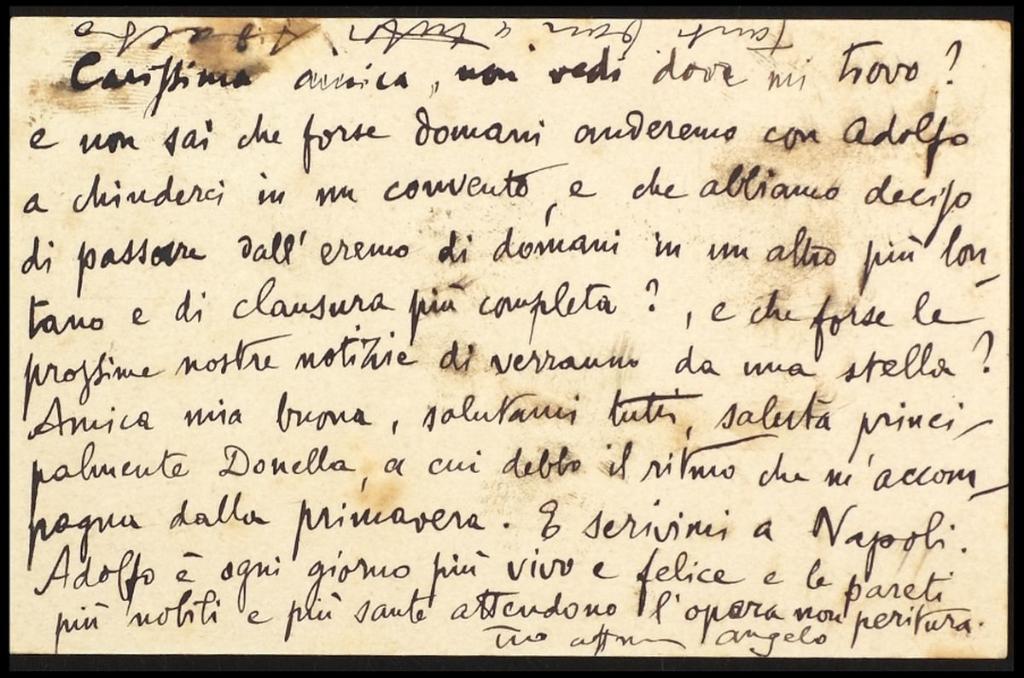 Tanti baci a tutti, Adolfo
Carissima amica, non vedi dove mi trovo?
e non sai che forse domani anderemo con Adolfo
a chiuderci in un convento, e che abbiamo deciso
di passare dall'eremo di domani in un altro più lon-
tano e di clausura più completa?, e che forse le
prossime nostre notizie di verranno da una stella?
Amica mia buona, salutami tutti, saluta princi-
palmente Donella, a cui debbo il ritmo che m'accom-
pagna dalla primavera. E scrivimi a Napoli.
Adolfo è ogni giorno più vivo e felice e le pareti
più nobili e più sante attendono l'opera non peritura.
tuo affmo angelo